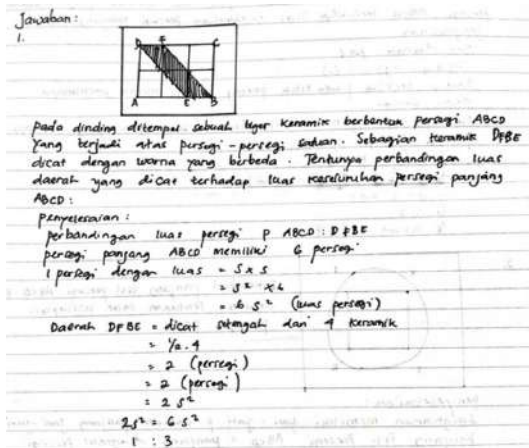 Jawaban :
1.
D F C
A E B
pada dinding ditempel sebuah keramik berbentuk persegi ABCD
yang terjadi atas persegi - persegi satuan. Sebagian keramik DFBE
dicat dengan warna yang berbeda. Tentunya perbandingan luas
daerah yang dicat terhadap luas keseluruhan persegi panjang
ABCD :
penyelesaian :
perbandingan luas persegi P ABCD : DFBE
persegi panjang ABCD memiliki 6 persegi
1 persegi dengan luas = s x s
= s² x 6
= 6 s² (luas persegi)
Daerah DFBE = dicat setengah dari 4 keramik
= 1/2 . 4
= 2 (persegi)
= 2 (persegi)
= 2 s²
2s² = 6 s²
1 : 3